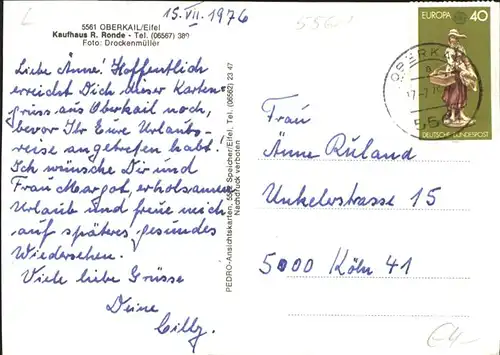 15. VII. 1976
5561 OBERKAIL/Eifel
Kaufhaus R. Ronde - Tel. (06567) 380
Foto: Drockenmüller
Liebe Änne! Hoffentlich
erreicht Dich unser Karten-
gruss aus Oberkail noch,
bevor Ihr Eure Urlaubs-
reise angetreten habt!
Ich wünsche Dir und
Frau Margot, erholsamen
Urlaub und freue mich
auf späteres gesundes
Wiedersehen.
Viele liebe Grüsse
Deine
Cilly.
PEDRO-Ansichtskarten, Speicher/Eifel, Tel. (06562) 23 47
Nachdruck verboten
EUROPA 40
DEUTSCHE BUNDESPOST
OBERK
Frau
Änne Ruland
Unkelerstrasse 15
5000 Köln 41